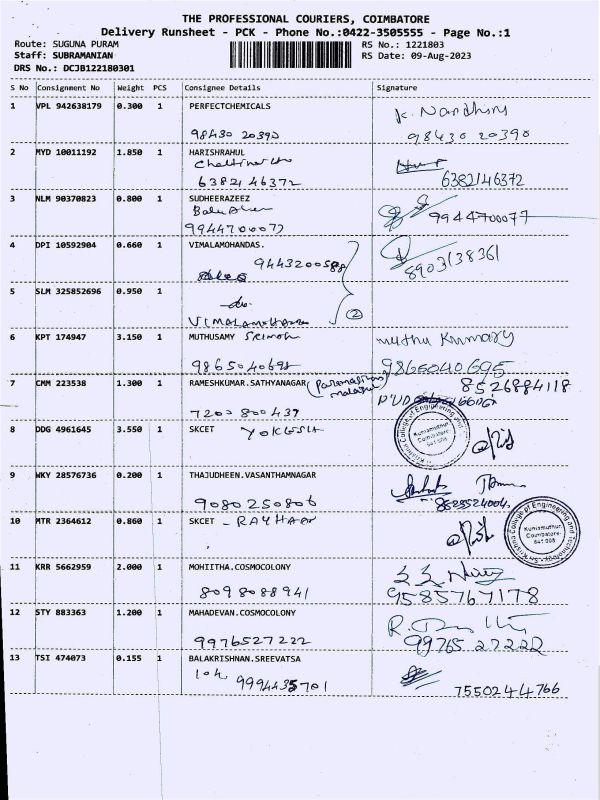 THE PROFESSIONAL COURIERS, COIMBATORE
Delivery Runsheet - PCK - Phone No.:0422-3505555 - Page No.:1
Route: SUGUNA PURAM RS No.: 1221803
Staff: SUBRAMANIAN RS Date: 09-Aug-2023
DRS No.: DCJB122180301
S No Consignment No Weight PCS Consignee Details Signature
1 VPL 942638179 0.300 1 PERFECTCHEMICALS
98430 20390 98430 20390
2 MYD 10011192 1.850 1 HARISHRAHUL
63821 46372 6382146372
3 NLM 90370823 0.800 1 SUDHEERAZEEZ
9944700077 9944700077
4 DPI 10592904 0.660 1 VIMALAMOHANDAS.
9443200588 8903138361
5 SLM 325852696 0.950 1 do.
2
6 KPT 174947 3.150 1 MUTHUSAMY
9865040695
7 CMM 223538 1.300 1 RAMESHKUMAR.SATHYANAGAR 8526884118
7200800437
8 DDG 4961645 3.550 1 SKCET YOKESH
Kuniamuthur
Coimbatore
641 008
9 WKY 28576736 0.200 1 THAJUDHEEN.VASANTHAMNAGAR
9080250806 8623524004
10 MTR 2364612 0.860 1 SKCET -
College of Engineering and Technology
Kuniamuthur
Coimbatore
641 008
11 KRR 5662959 2.000 1 MOHIITHA.COSMOCOLONY
8098088941 9585767178
12 STY 883363 1.200 1 MAHADEVAN.COSMOCOLONY
9976527222 99765 27222
13 TSI 474073 0.155 1 BALAKRISHNAN.SREEVATSA
9994435701 7550244766